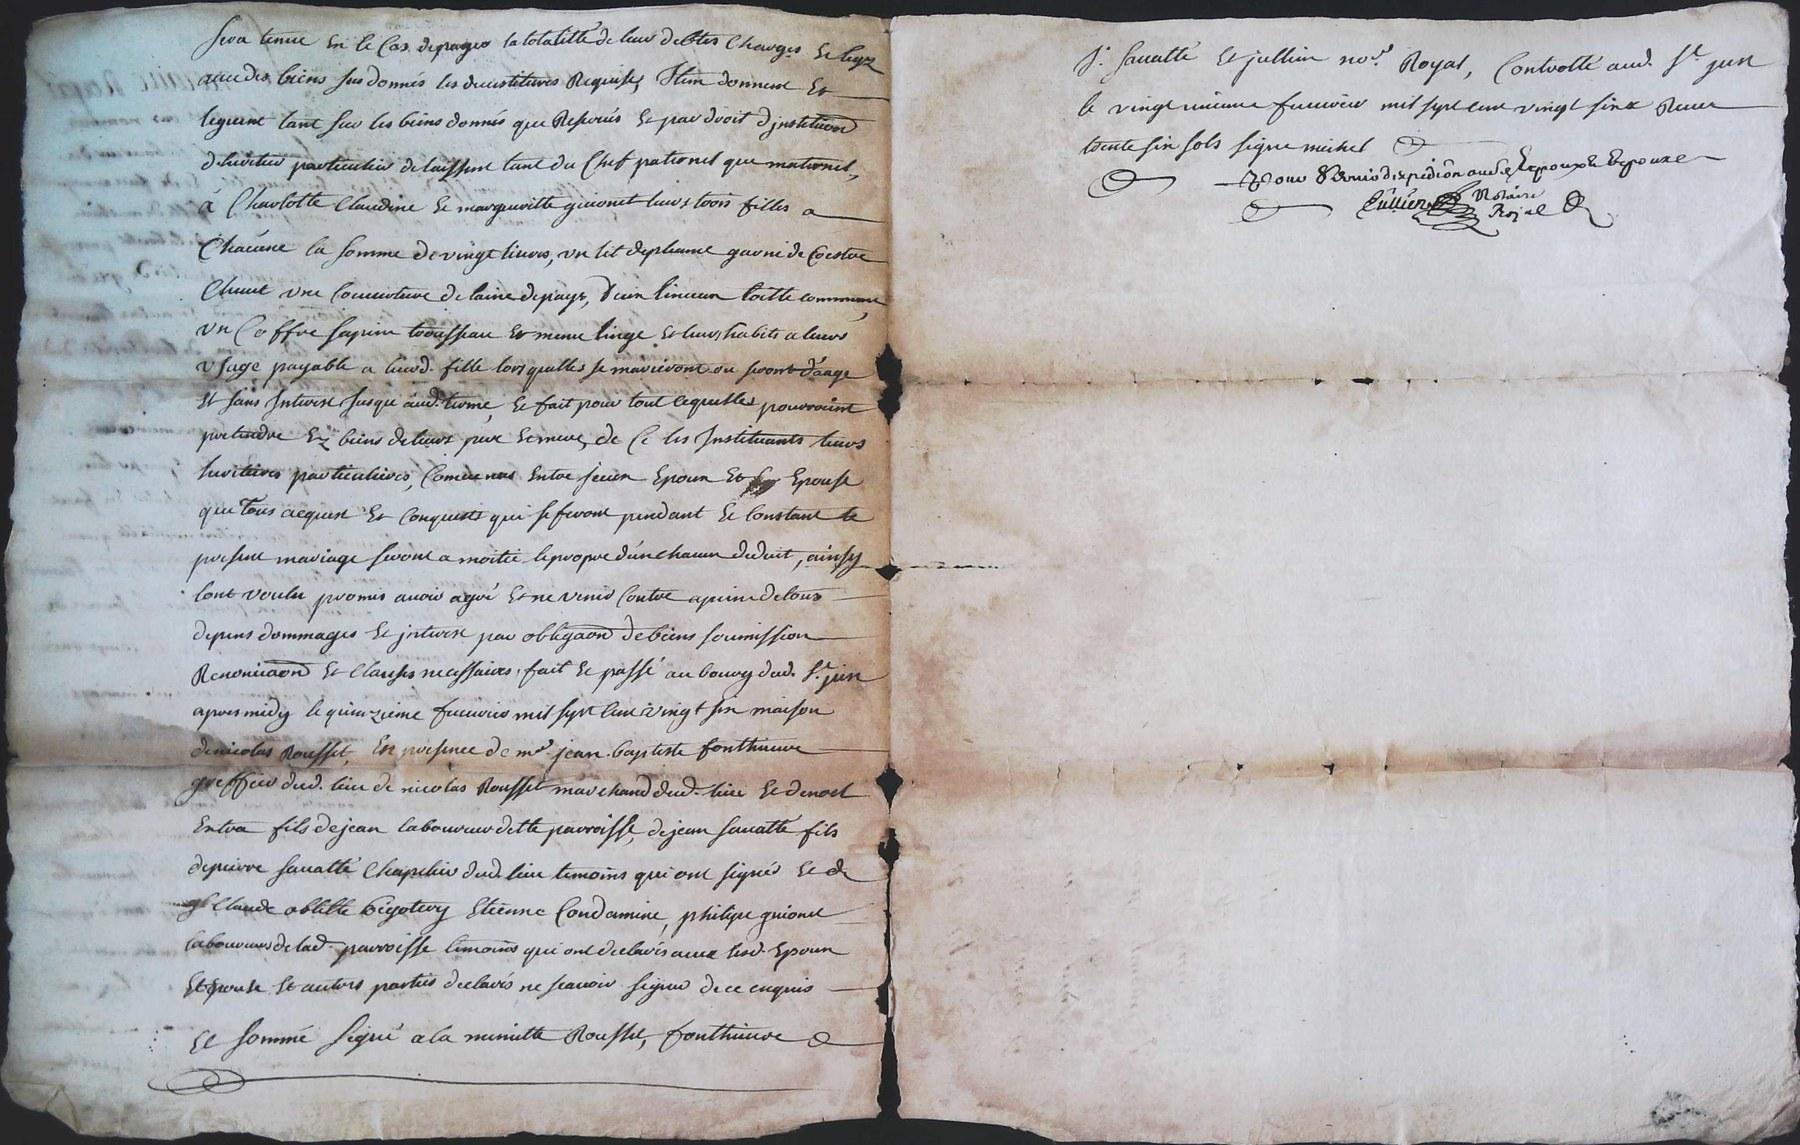 sera tenue en le Cas depayer la totalitté de leur debtes Charges Et legz
avec des biens sus donnés les devestitures Requises, Item donnent Et
leguent tant sur les biens donnés que Reservés Et par droit d'institüon
delheritier particulier delaissent tant du Chef paternel que maternel,
à Charlotte Claudine Et margueritte guionet leurs trois filles a
Chacune la somme de vingt livres, un lit de plume garni de Coestre
Chuuet une Couverture de laine de pays, d'un linceux toille commune,
un Coffre sapin trousseau Et menu linge Et leurs habits a leurs
usage payable a leursd. fille lors qu'elles se marieront ou seront d'aage
Et sans Interest Jusqu'audt. terme, Et fait pour tout ce qu'elles pouvroint
pretendre Ez biens de leurs pere Et mere, de Ce les Instituants leurs
heritieres particulieres, Convenus Entre iceux Epoux Et Epouse
que Tous acquest Et Conquests qui se feront pendant Et Constant le
present mariage seront a moitié le propre d'un chacun deduit, ainsy
l'ont voulu promis avoir agré Et ne venir Contre a peine de tous
depens dommages Et interest par obligaon de biens soumission
Renonciaon Et Clauses necessaires, fait Et passé au bourg dud. St. just
apres midy le quinzieme fevrier mil sept Cent vingt six maison
de nicolas Rousset, En presence de me. jean baptiste fonthieure
greffier dud. lieu de nicolas Rousset marchand dud. lieu Et de noel
Entra fils de jean laboureur de lle parroisse, de jean sauatté fils
de pierre sauatté Chapelier dud. lieu temoins qui ont signés Et de
Claude obtitte Etienne Condamine, philipe guionet
laboureurs de lad. parroisse temoins qui ont declarés avec lesd. Epoux
Et Epouse Et autres parties declarés ne scavoir signer de ce enquis
Et sommé signé a la minutte Rousset, fonthieure
J. sauatté Et jullien nore. Royal, Controllé aud. St. just
le vingt unieme fevrier mil sept Cent vingt six Receu
trente six sols signé michel
Pour d'expedion ausds Epoux Et Epouse
Jullien Notaire
Royal